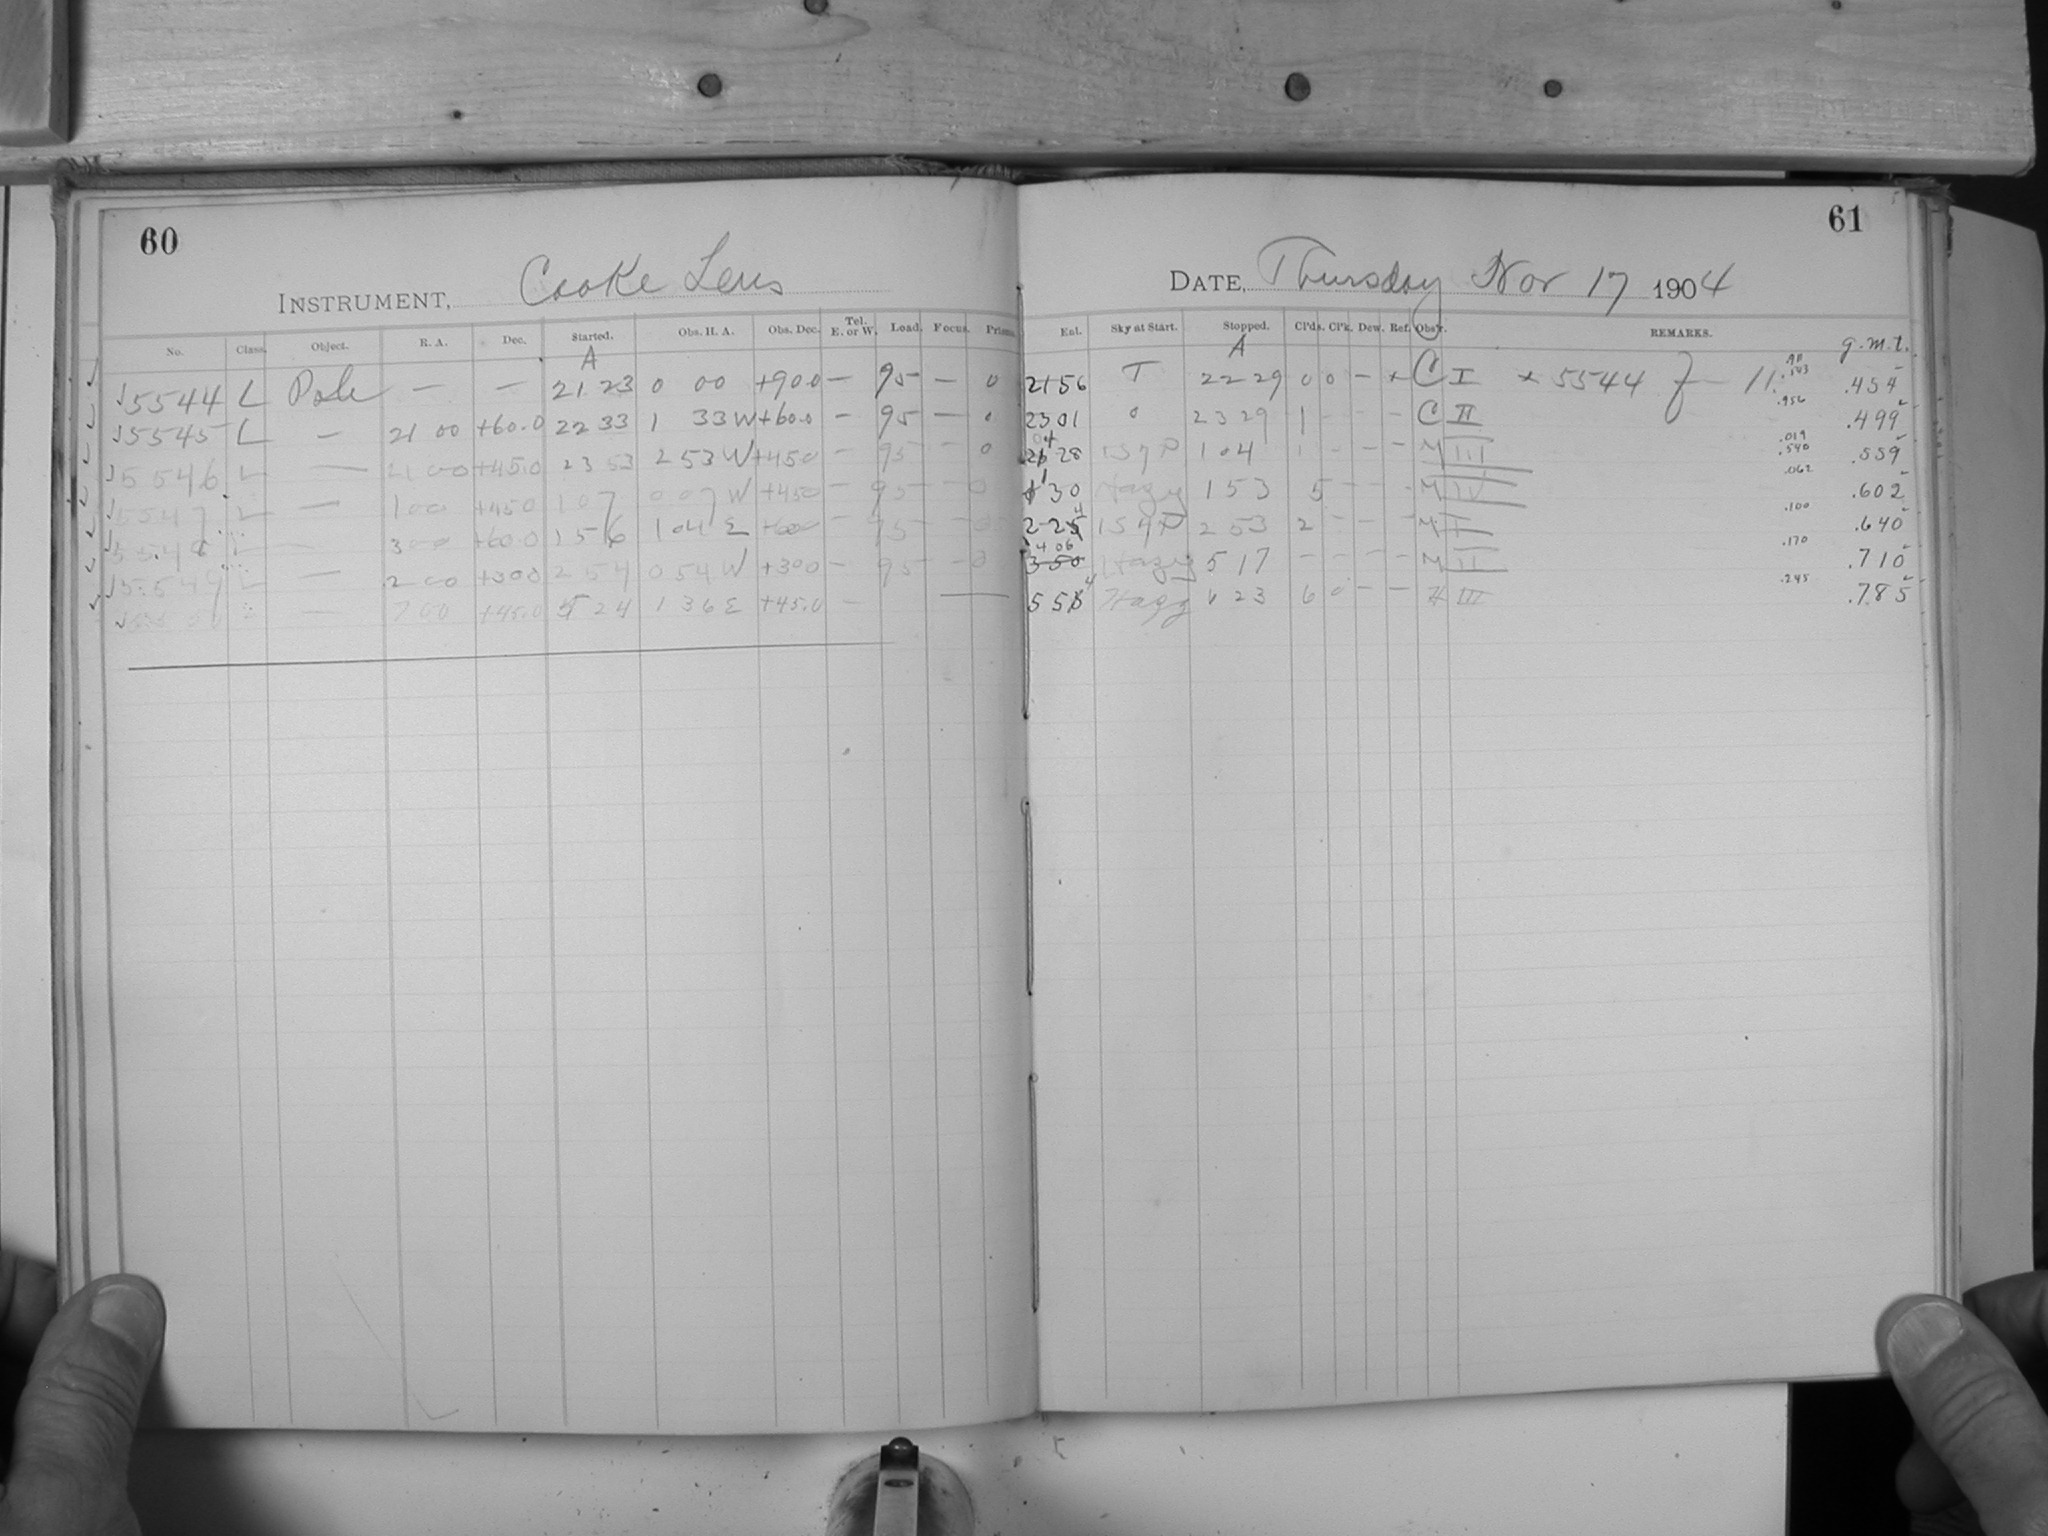 60
INSTRUMENT, Cooke Lens
No. Class. Object. R. A. Dec. Started. Obs. H. A. Obs. Dec. Tel. E. or W. Load. Focus. Prisms.
A
5544 L Pole — — 21 23 0 00 +90.0 — 95 — 0
5545 L — 21 00 +60.0 22 33 1 33 W +60.0 — 95 — 0
5546 L — 21 00 +45.0 23 53 2 53 W +45.0 — 95 — 0
5547 L — 1 00 +45.0 1 07 0 07 W +45.0 — 95 — 0
5548 L — 3 00 +60.0 1 56 1 04 E +60.0 — 95 — 0
5549 L — 2 00 +30.0 2 54 0 54 W +30.0 — 95 — 0
— 7 00 +45.0 5 24 1 36 E +45.0 —
61
DATE, Thursday Nov 17 1904
Eni. Sky at Start. Stopped. Cl'ds. Cl'k. Dew. Ref. Obs'r. REMARKS.
A g.m.t.
21 56 T 22 29 0 0 — x C I x 5544 .454
23 01 0 23 29 1 - - - C II .956 .499
28 1 04 1 - - - M III .019 .540 .559
1 30 Hazy 1 53 5 - - - M IV .062 .602
2 24 2 53 2 - - - M I .100 .640
4 06 Hazy 5 17 - - - - M II .170 .710
5 54 Hazy 6 23 6 0 - - III .245 .785